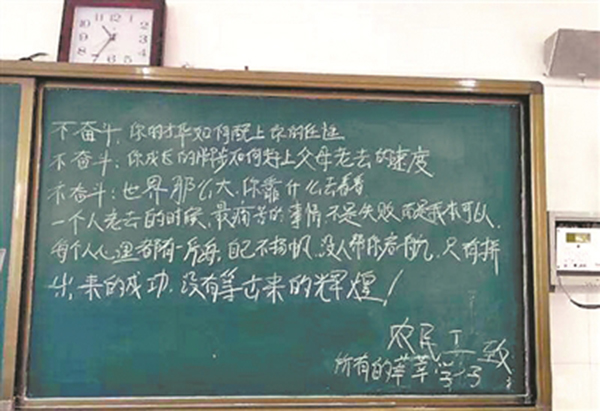 不奋斗,你的才华如何配上你的任性
不奋斗:你成长的脚步如何赶上父母老去的速度
不奋斗:世界那么大,你靠什么去看看
一个人老去的时候,最痛苦的事情不是失败,而是我本可以.
每个人心里都有一片海,自己不扬帆,没人帮你启航,只有拼
出来的成功,没有等出来的辉煌!
农民工致
所有的莘莘学子